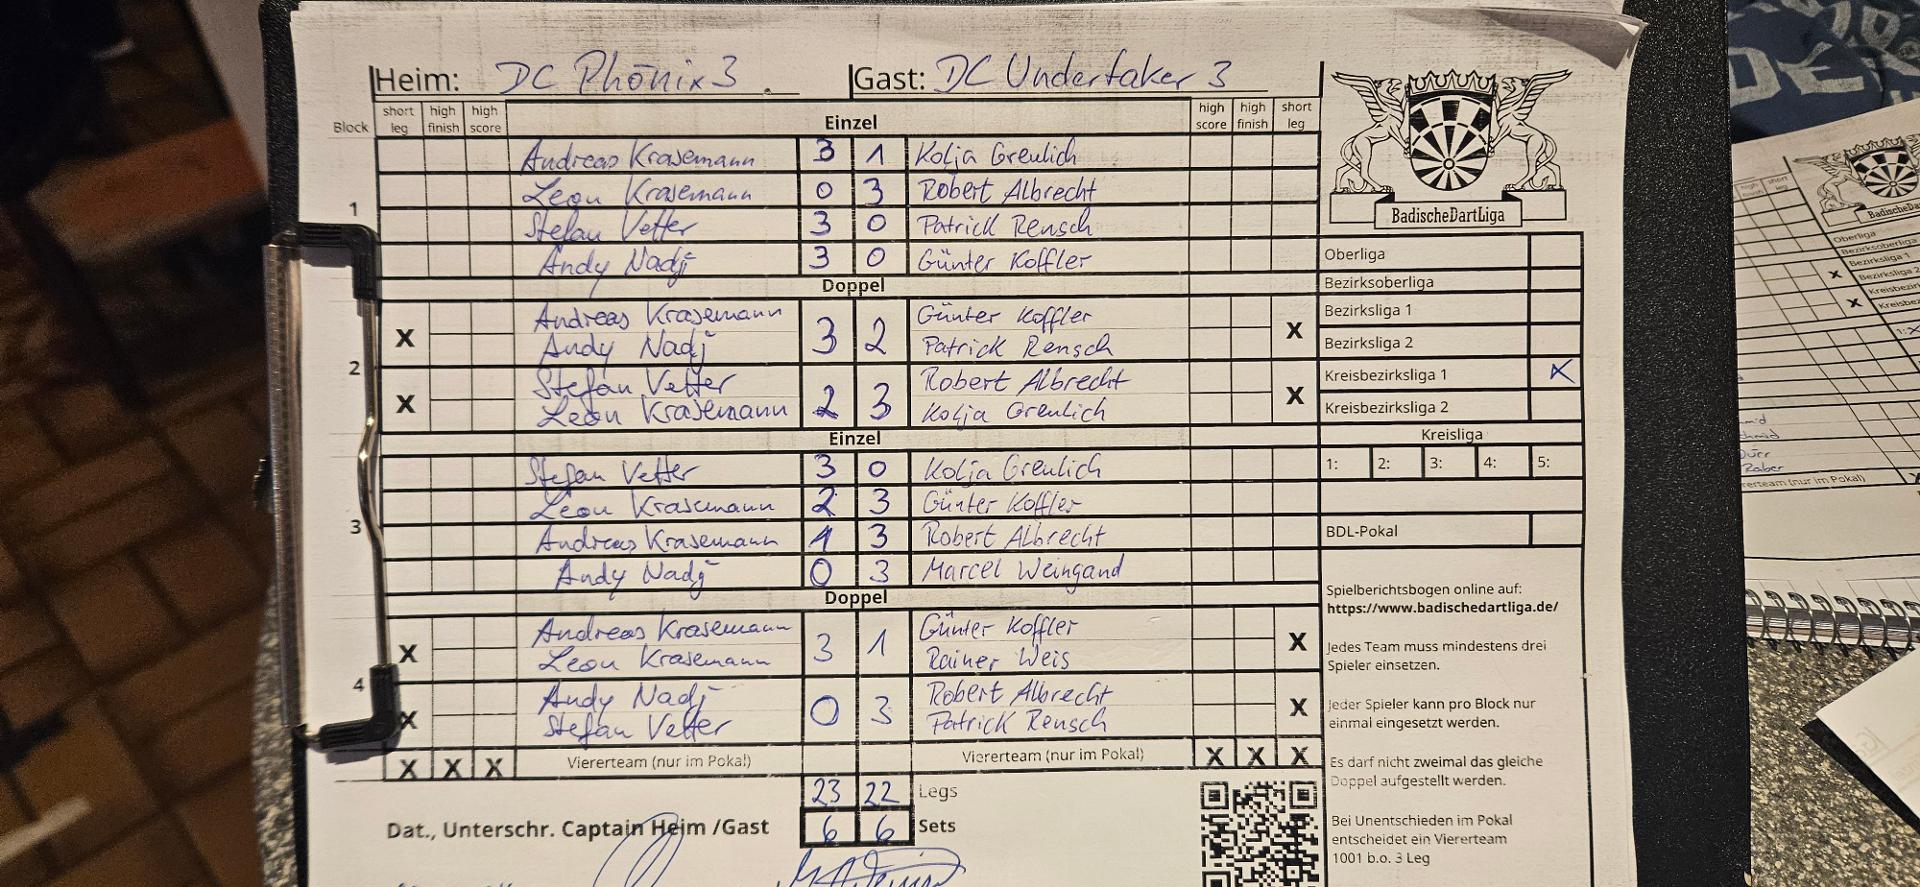 Heim: DC Phönix 3 Gast: DC Undertaker 3
Block short leg high finish high score Einzel high score high finish short leg
Andreas Krasemann 3 1 Kolja Greulich
1 Leon Krasemann 0 3 Robert Albrecht
Stefan Vetter 3 0 Patrick Rensch
Andy Nadj 3 0 Günter Koffler
Doppel
X Andreas Krasemann 3 2 Günter Koffler X
Andy Nadj Patrick Rensch
2
X Stefan Vetter 2 3 Robert Albrecht X
Leon Krasemann Kolja Greulich
Einzel
Stefan Vetter 3 0 Kolja Greulich
Leon Krasemann 2 3 Günter Koffler
3 Andreas Krasemann 1 3 Robert Albrecht
Andy Nadj 0 3 Marcel Weingand
Doppel
X Andreas Krasemann 3 1 Günter Koffler X
Leon Krasemann Rainer Weis
4
X Andy Nadj 0 3 Robert Albrecht X
Stefan Vetter Patrick Rensch
X X X Viererteam (nur im Pokal) Viererteam (nur im Pokal) X X X
23 22 Legs
Dat., Unterschr. Captain Heim /Gast 6 6 Sets
BadischeDartLiga
Oberliga
Bezirksoberliga
Bezirksliga 1
Bezirksliga 2
Kreisbezirksliga 1 X
Kreisbezirksliga 2
Kreisliga
1: 2: 3: 4: 5:
BDL-Pokal
Spielberichtsbogen online auf:
https://www.badischedartliga.de/
Jedes Team muss mindestens drei
Spieler einsetzen.
Jeder Spieler kann pro Block nur
einmal eingesetzt werden.
Es darf nicht zweimal das gleiche
Doppel aufgestellt werden.
Bei Unentschieden im Pokal
entscheidet ein Viererteam
1001 b.o. 3 Leg
BadischeDartLiga
Oberliga
Bezirksoberliga
Bezirksliga 1
Bezirksliga 2